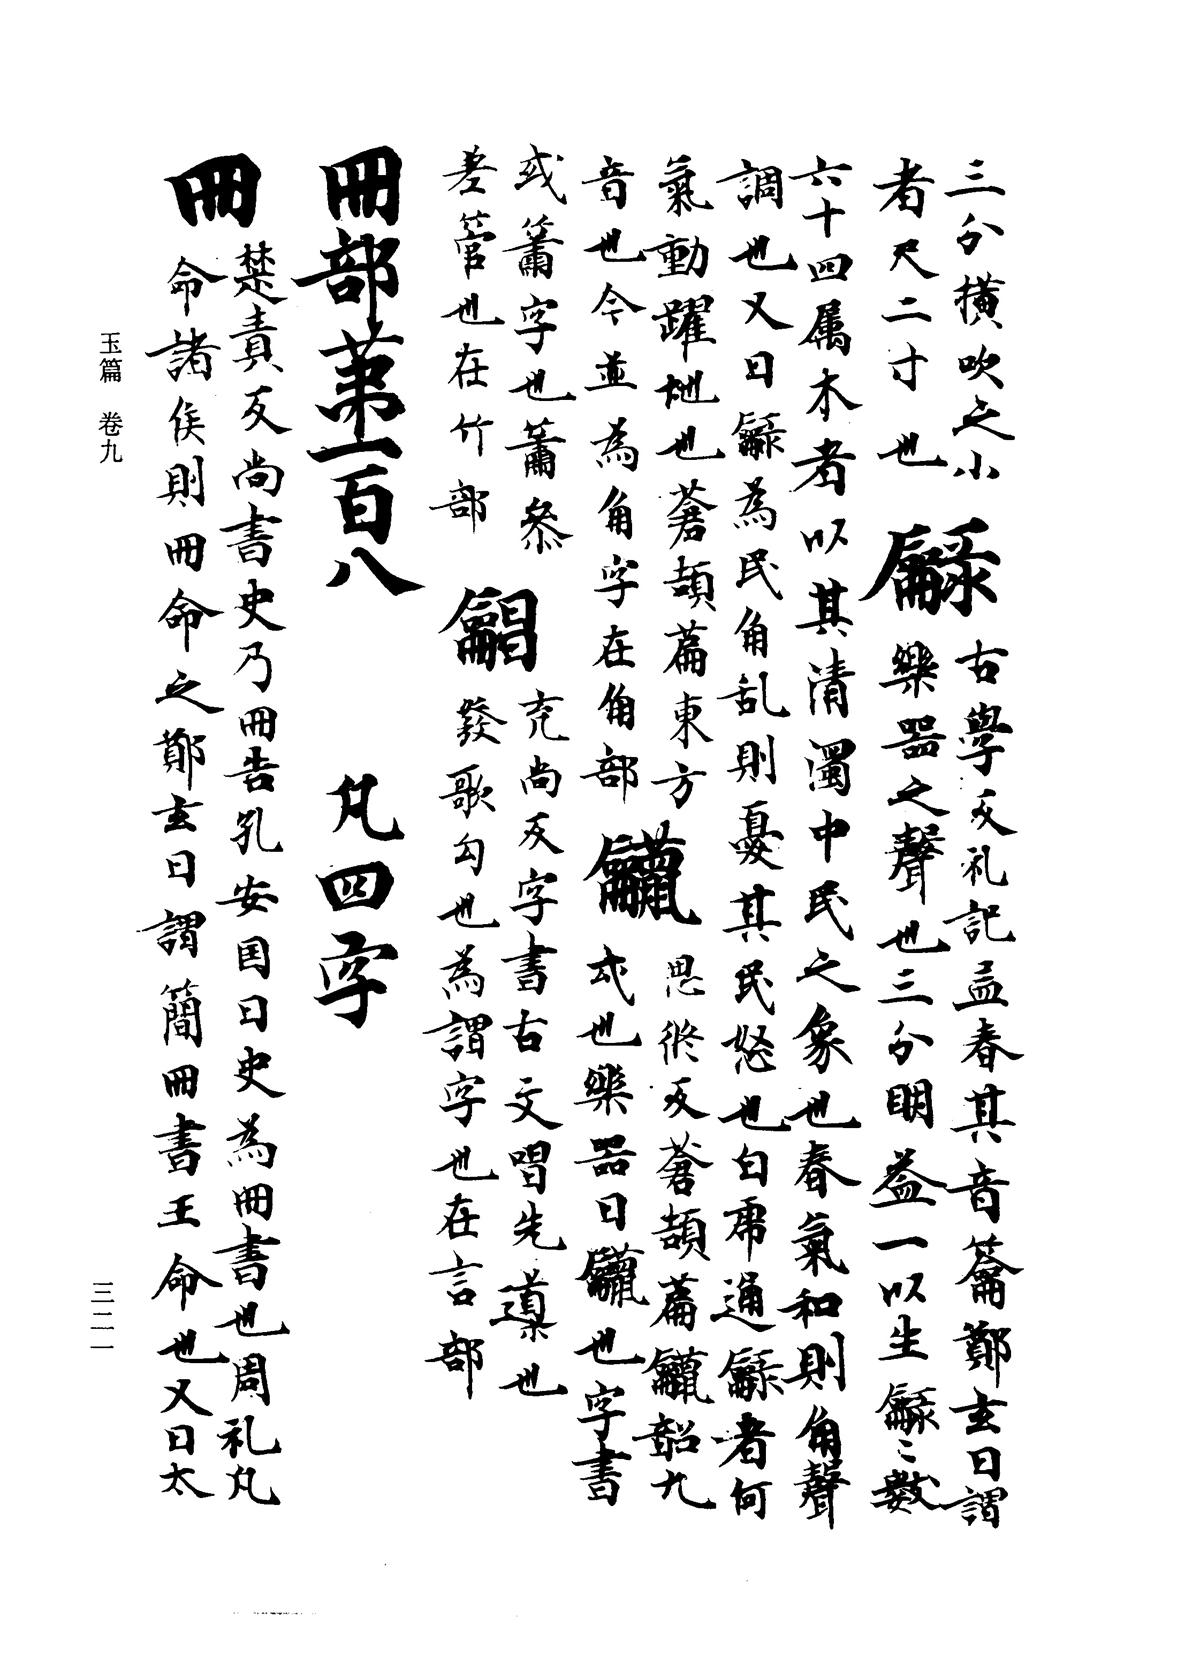 三分横吹之小
者尺二寸也 龣 古學反礼記孟春其音籥鄭玄曰謂
樂器之聲也三分明益一以生龣〻數
六十四属木者以其清濁中民之象也春氣和則角聲
調也又曰龣為民角乱則憂其民怒也白虎通龣者何
氣動躍地也蒼頡篇東方
音也今並為角字在角部 䶳 思條反蒼頡篇䶳韶九
成也樂器曰䶳也字書
或簫字也簫參
差管也在竹部 龥 充尚反字書古文唱先導也
發歌勾也為謂字也在言部
冊部第一百八 凡四字
冊 楚責反尚書史乃冊告孔安国曰史為冊書也周礼凡
命諸侯則冊命之鄭玄曰謂簡冊書王命也又曰太
玉篇 卷九
三二一